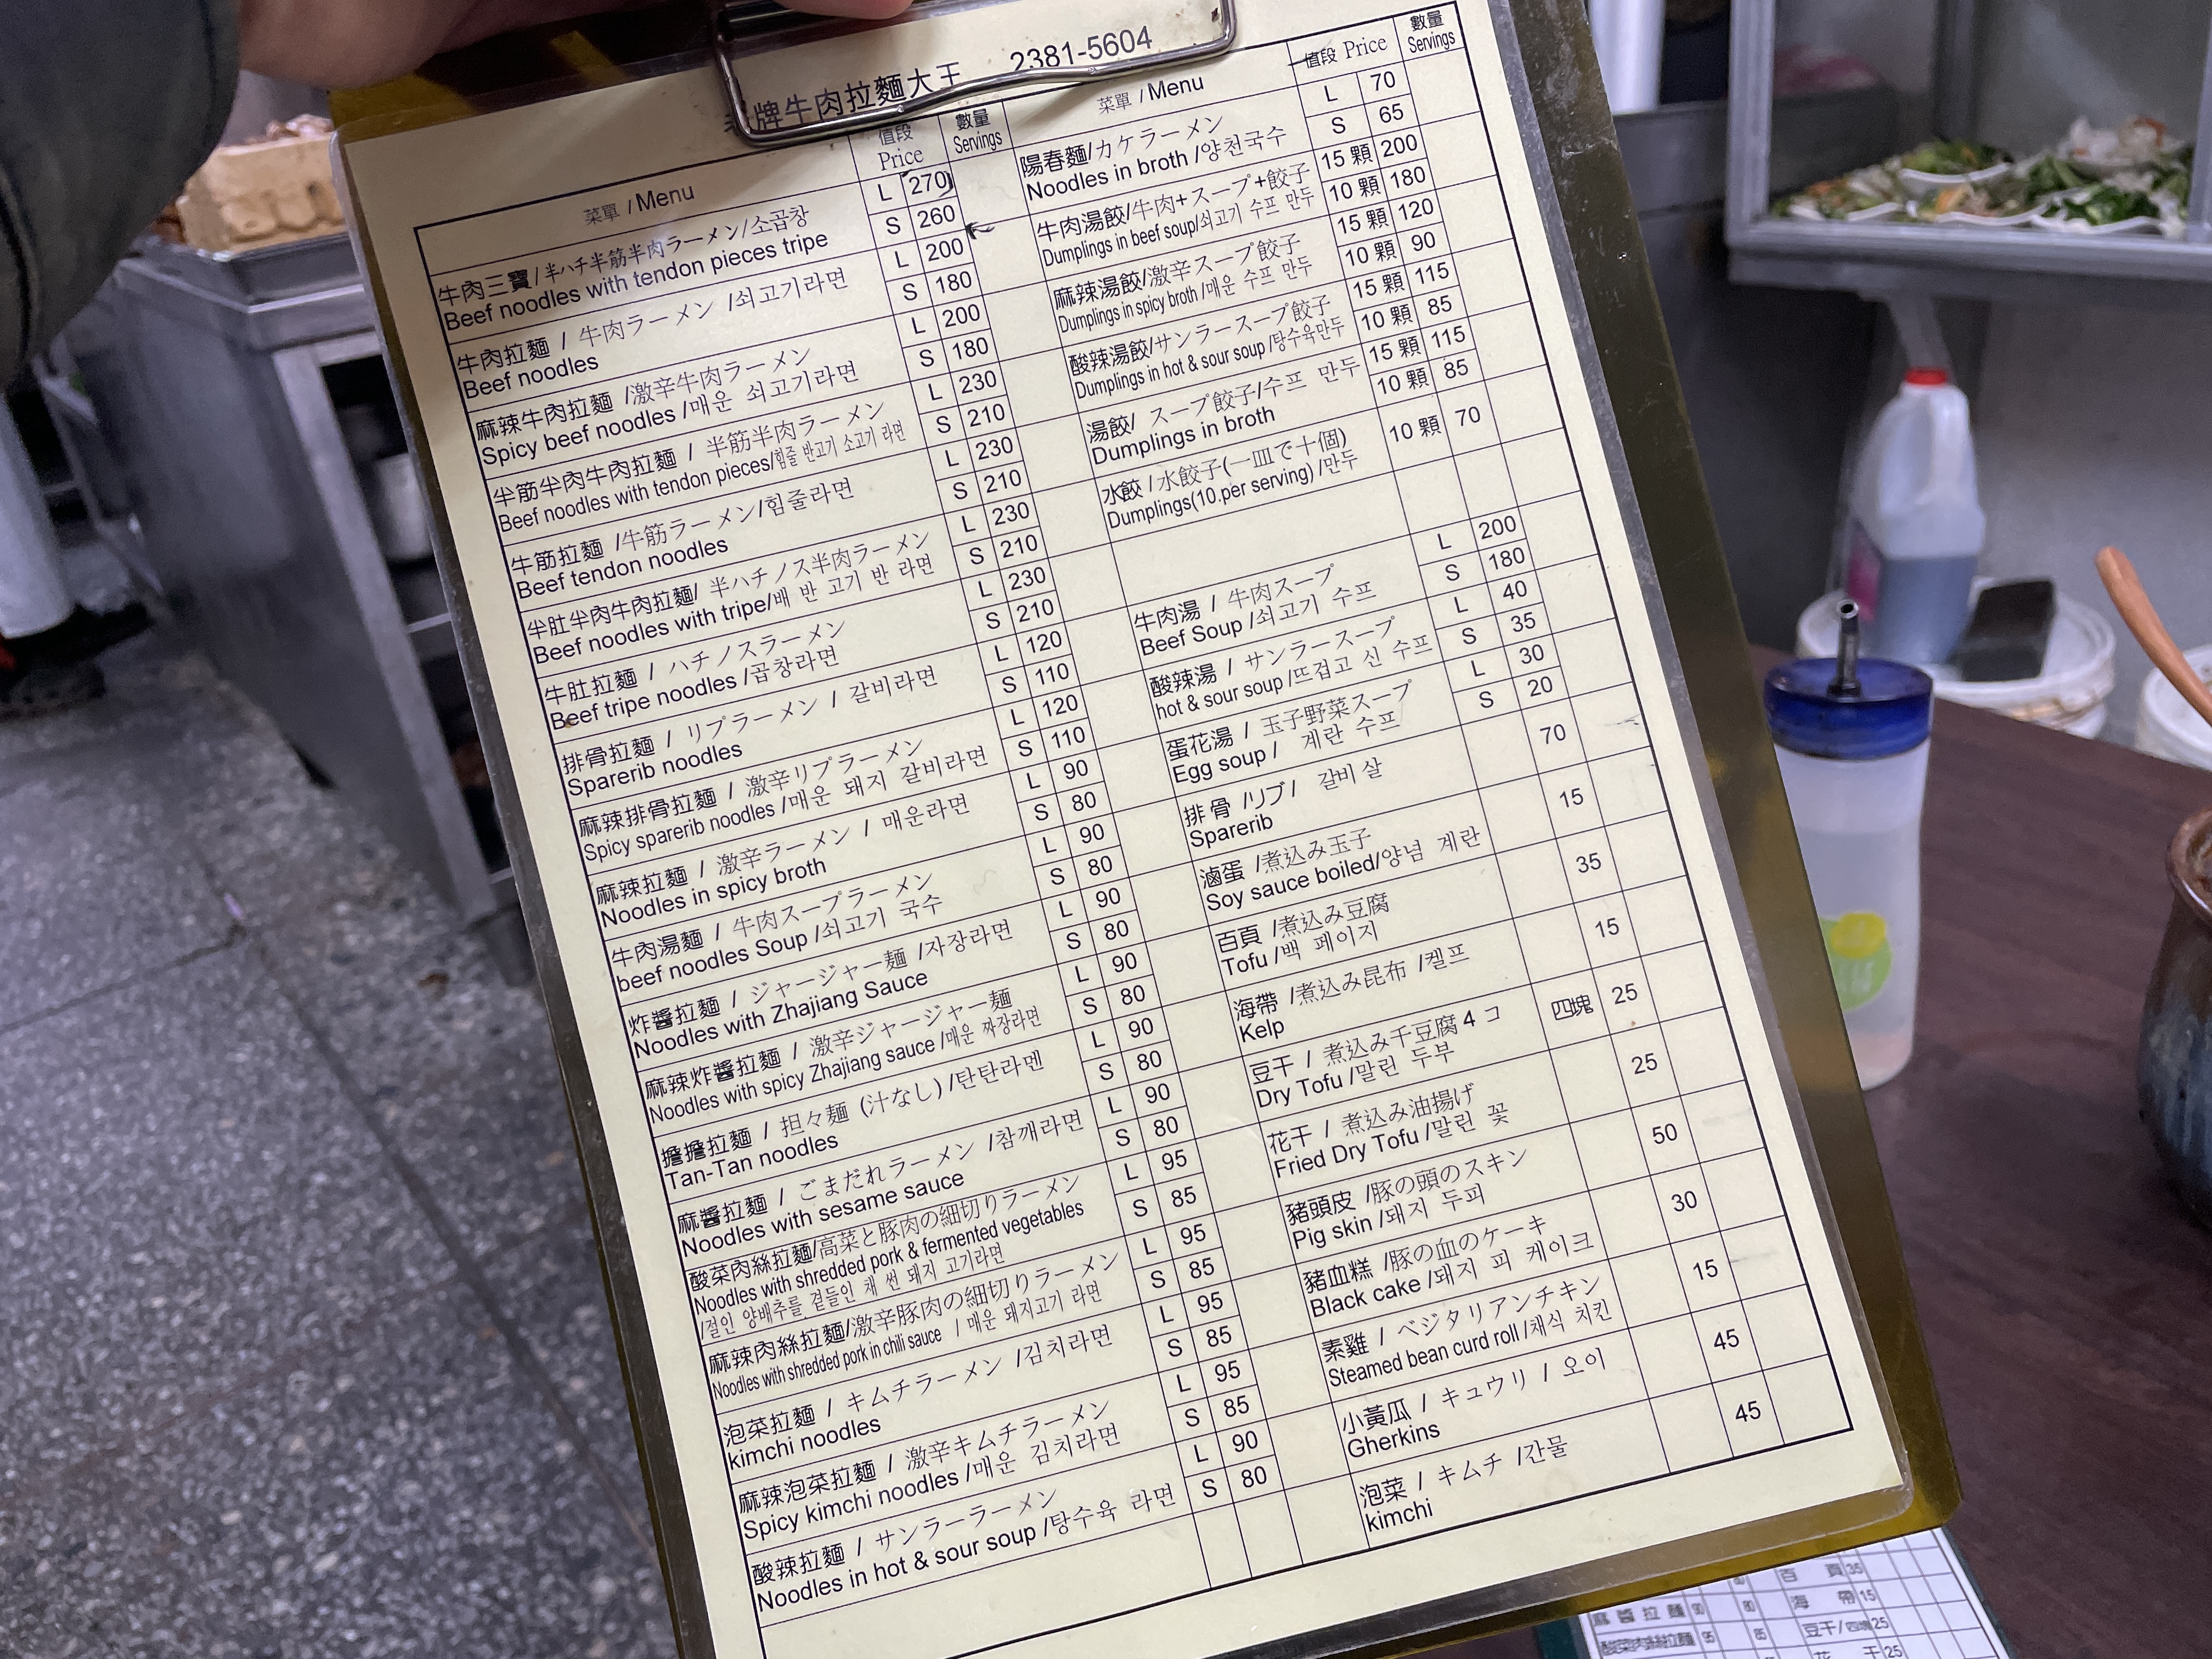 牌牛肉拉麵大王 2381-5604
菜單 / Menu
值段 Price
數量 Servings
牛肉三寶/半ハチ半筋半肉ラーメン/소곱창
Beef noodles with tendon pieces tripe
L 270
S 260
牛肉拉麵 / 牛肉ラーメン /쇠고기라면
Beef noodles
L 200
S 180
麻辣牛肉拉麵 /激辛牛肉ラーメン
Spicy beef noodles /매운 쇠고기라면
L 200
S 180
半筋半肉牛肉拉麵 / 半筋半肉ラーメン
Beef noodles with tendon pieces/힘줄 반고기 소고기 라면
L 230
S 210
牛筋拉麵 /牛筋ラーメン/힘줄라면
Beef tendon noodles
L 230
S 210
半肚半肉牛肉拉麵/ 半ハチノス半肉ラーメン
Beef noodles with tripe/배 반 고기 반 라면
L 230
S 210
牛肚拉麵 / ハチノスラーメン
Beef tripe noodles /곱창라면
L 230
S 210
排骨拉麵 / リプラーメン / 갈비라면
Sparerib noodles
L 120
S 110
麻辣排骨拉麵 / 激辛リプラーメン
Spicy sparerib noodles /매운 돼지 갈비라면
L 120
S 110
麻辣拉麵 / 激辛ラーメン / 매운라면
Noodles in spicy broth
L 90
S 80
牛肉湯麵 / 牛肉スープラーメン
beef noodles Soup /쇠고기 국수
L 90
S 80
炸醬拉麵 / ジャージャー麺 /자장라면
Noodles with Zhajiang Sauce
L 90
S 80
麻辣炸醬拉麵 / 激辛ジャージャー麺
Noodles with spicy Zhajiang sauce /매운 짜장라면
L 90
S 80
擔擔拉麵 / 担々麺 (汁なし) /탄탄라멘
Tan-Tan noodles
L 90
S 80
麻醬拉麵 / ごまだれラーメン /참깨라면
Noodles with sesame sauce
L 90
S 80
酸菜肉絲拉麵/高菜と豚肉の細切りラーメン
Noodles with shredded pork & fermented vegetables
/절인 양배추를 곁들인 채 썬 돼지 고기라면
L 95
S 85
麻辣肉絲拉麵/激辛豚肉の細切りラーメン
Noodles with shredded pork in chili sauce / 매운 돼지고기 라면
L 95
S 85
泡菜拉麵 / キムチラーメン /김치라면
kimchi noodles
L 95
S 85
麻辣泡菜拉麵 / 激辛キムチラーメン
Spicy kimchi noodles /매운 김치라면
L 95
S 85
酸辣拉麵 / サンラーラーメン
Noodles in hot & sour soup /탕수육 라면
L 90
S 80
菜單 / Menu
值段 Price
數量 Servings
陽春麵/カケラーメン
Noodles in broth /양천국수
L 70
S 65
牛肉湯餃/牛肉+スープ+餃子
Dumplings in beef soup/쇠고기 수프 만두
15 顆 200
10 顆 180
麻辣湯餃/激辛スープ餃子
Dumplings in spicy broth /매운 수프 만두
15 顆 120
10 顆 90
酸辣湯餃/サンラースープ餃子
Dumplings in hot & sour soup /탕수육만두
15 顆 115
10 顆 85
湯餃/ スープ餃子/수프 만두
Dumplings in broth
15 顆 115
10 顆 85
水餃 /水餃子(一皿で十個)
Dumplings(10.per serving) /만두
10 顆 70
牛肉湯 / 牛肉スープ
Beef Soup /쇠고기 수프
L 200
S 180
酸辣湯 / サンラースープ
hot & sour soup /뜨겁고 신 수프
L 40
S 35
蛋花湯 / 玉子野菜スープ
Egg soup / 계란 수프
L 30
S 20
排骨 /リブ/ 갈비 살
Sparerib
70
滷蛋 /煮込み玉子
Soy sauce boiled/양념 계란
15
百頁 /煮込み豆腐
Tofu /백 페이지
35
海帶 /煮込み昆布 /켈프
Kelp
15
豆干 / 煮込み干豆腐４コ
Dry Tofu /말린 두부
四塊 25
花干 / 煮込み油揚げ
Fried Dry Tofu /말린 꽃
25
豬頭皮 /豚の頭のスキン
Pig skin /돼지 두피
50
豬血糕 /豚の血のケーキ
Black cake /돼지 피 케이크
30
素雞 / ベジタリアンチキン
Steamed bean curd roll /채식 치킨
15
小黃瓜 / キュウリ / 오이
Gherkins
45
泡菜 / キムチ /간물
kimchi
45
百頁 35
麻醬拉麵 90 80 海帶 15
酸菜肉絲拉麵 95 85 豆干/四塊 25
花干 25